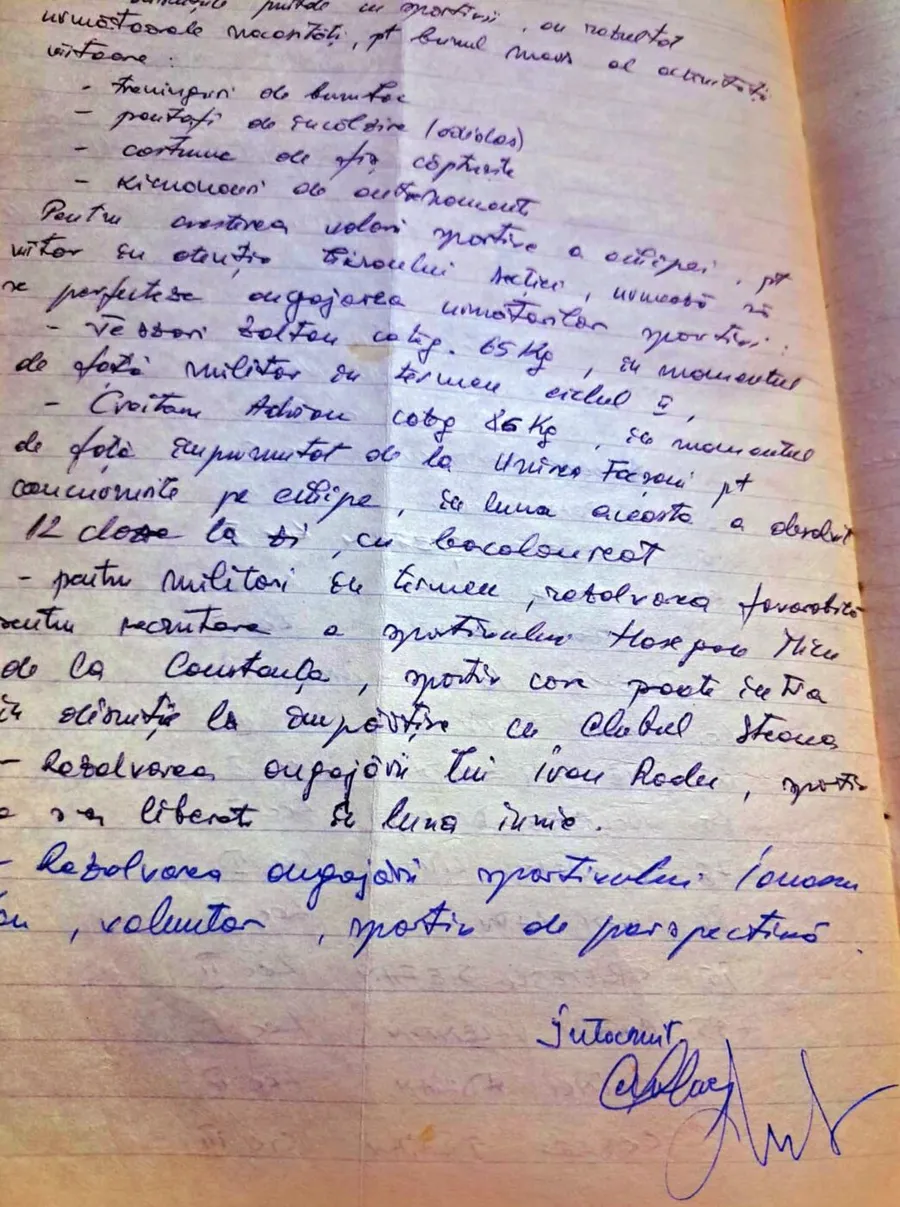 purtate cu sportivii, au rezultat
următoarele necesități, pt bunul mers al activității
viitoare:
- treninguri de bumbac
- pantofi de încălzire (adidas)
- costume de fîș căptușite
- kimonouri de antrenament
Pentru creșterea valorii sportive a echipei, pt
viitor în atenția biroului secției, urmează să
se perfecteze angajarea următorilor sportivi:
- Vezsari Zoltan categ. 65 Kg, în momentul
de față militar în termen ciclul II,
- Croitaru Adrian categ 86 Kg, în momentul
de față împrumutat de la Unirea Focșani pt
concursurile pe echipe, în luna aceasta a absolvit
12 clase la zi, cu bacalaureat
- pentru militari în termen, rezolvarea favorabilă
pentru recrutare a sportivului Micu
de la Constanța, sportiv care poate intra
în discuție la împărțire cu Clubul Steaua
- Rezolvarea angajării lui Ivan Radu, sportiv
liberat în luna iunie.
- Rezolvarea angajării sportivului
, voluntar, sportiv de perspectivă.
Întocmit,